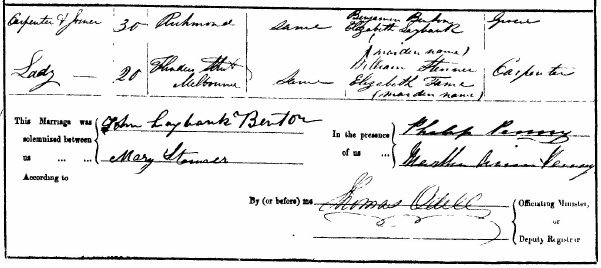 Carpenter & Joiner 30 Richmond same Benjamin Benton Elizabeth Laybank Grocer
(maiden name)
Lady — 20 Flinders Street Melbourne same William Stenner Elizabeth Fame Carpenter
(maiden name)
This Marriage was solemnized between us ... ...
John Laybank Benton
Mary Stenner
In the presence of us ... ...
Philip Penny
Martha Penny
According to
By (or before) me Thomas Odell
Officiating Minister, or Deputy Registrar